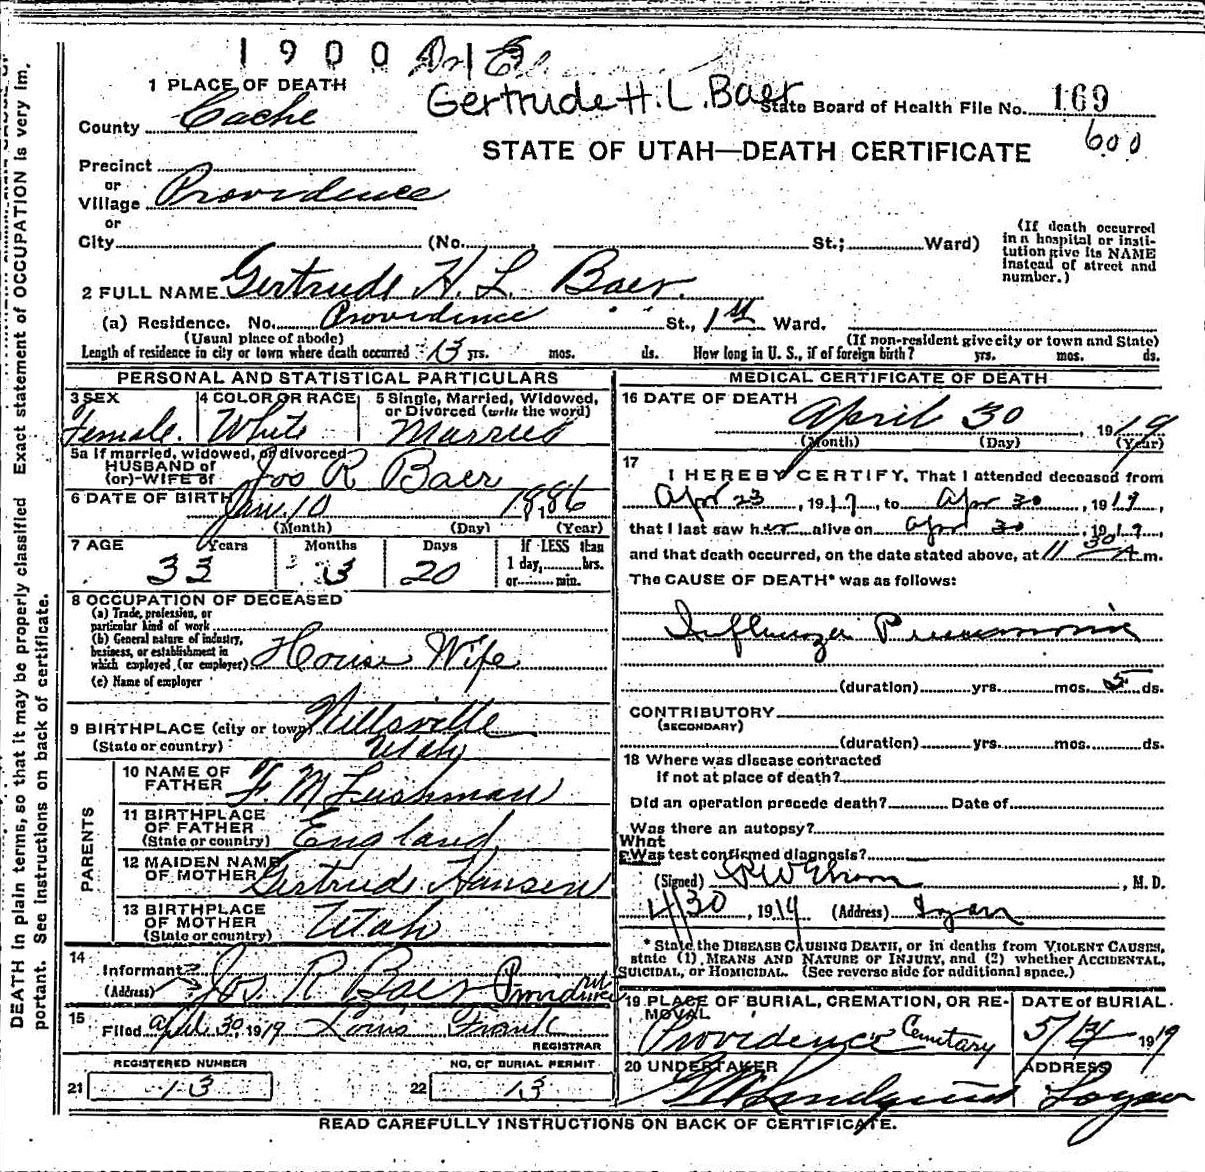 1900
1 PLACE OF DEATH
Gertrude H. L. Baer
State Board of Health File No. 169
County Cache
600
STATE OF UTAH—DEATH CERTIFICATE
Precinct
or
Village Providence
or
City (No. St.; Ward)
(If death occurred in a hospital or insti-
tution give its NAME
instead of street and
number.)
2 FULL NAME Gertrude H. L. Baer.
(a) Residence. No. Providence St., 1st Ward.
(Usual place of abode) (If non-resident give city or town and State)
Length of residence in city or town where death occurred 13 yrs. mos. ds. How long in U. S., if of foreign birth? yrs. mos. ds.
PERSONAL AND STATISTICAL PARTICULARS
3 SEX 4 COLOR OR RACE 5 Single, Married, Widowed,
or Divorced (write the word)
Female. White Married
5a If married, widowed, or divorced
HUSBAND of
(or) WIFE of Jos R Baer
6 DATE OF BIRTH Jan. 10 1886
(Month) (Day) (Year)
7 AGE Years Months Days If LESS than
1 day, hrs.
or min.
33 3 20
8 OCCUPATION OF DECEASED
(a) Trade, profession, or
particular kind of work
(b) General nature of industry,
business, or establishment in
which employed (or employer) House Wife
(c) Name of employer
9 BIRTHPLACE (city or town) Millsville
(State or country) Utah
PARENTS
10 NAME OF
FATHER F. M. Lushman
11 BIRTHPLACE
OF FATHER
(State or country) England
12 MAIDEN NAME
OF MOTHER Gertrude Hansen
13 BIRTHPLACE
OF MOTHER
(State or country) Utah
14
Informant Jos R Baer
(Address) Providence
15
Filed April 30 1919 Louis Frank
REGISTRAR
REGISTERED NUMBER NO. OF BURIAL PERMIT
21 13 22 13
MEDICAL CERTIFICATE OF DEATH
16 DATE OF DEATH
April 30, 1919
(Month) (Day) (Year)
17
I HEREBY CERTIFY, That I attended deceased from
Apr 23, 1919, to Apr 30 1919,
that I last saw her alive on Apr 30 1919,
and that death occurred, on the date stated above, at 11 30 A.m.
The CAUSE OF DEATH* was as follows:
Influenza Pneumonia
(duration) yrs. mos. 5 ds.
CONTRIBUTORY
(SECONDARY)
(duration) yrs. mos. ds.
18 Where was disease contracted
if not at place of death?
Did an operation precede death? Date of
Was there an autopsy?
What
Was test confirmed diagnosis?
(Signed) , M. D.
4/30, 1919 (Address) Logan
* State the DISEASE CAUSING DEATH, or in deaths from VIOLENT CAUSES,
state (1) MEANS AND NATURE OF INJURY, and (2) whether ACCIDENTAL,
SUICIDAL, or HOMICIDAL. (See reverse side for additional space.)
19 PLACE OF BURIAL, CREMATION, OR RE-
MOVAL DATE of BURIAL
Providence Cemetary 1919
20 UNDERTAKER ADDRESS
Lindquist Logan
READ CAREFULLY INSTRUCTIONS ON BACK OF CERTIFICATE.
DEATH in plain terms, so that it may be properly classified Exact statement of OCCUPATION is very im-
portant. See instructions on back of certificate.